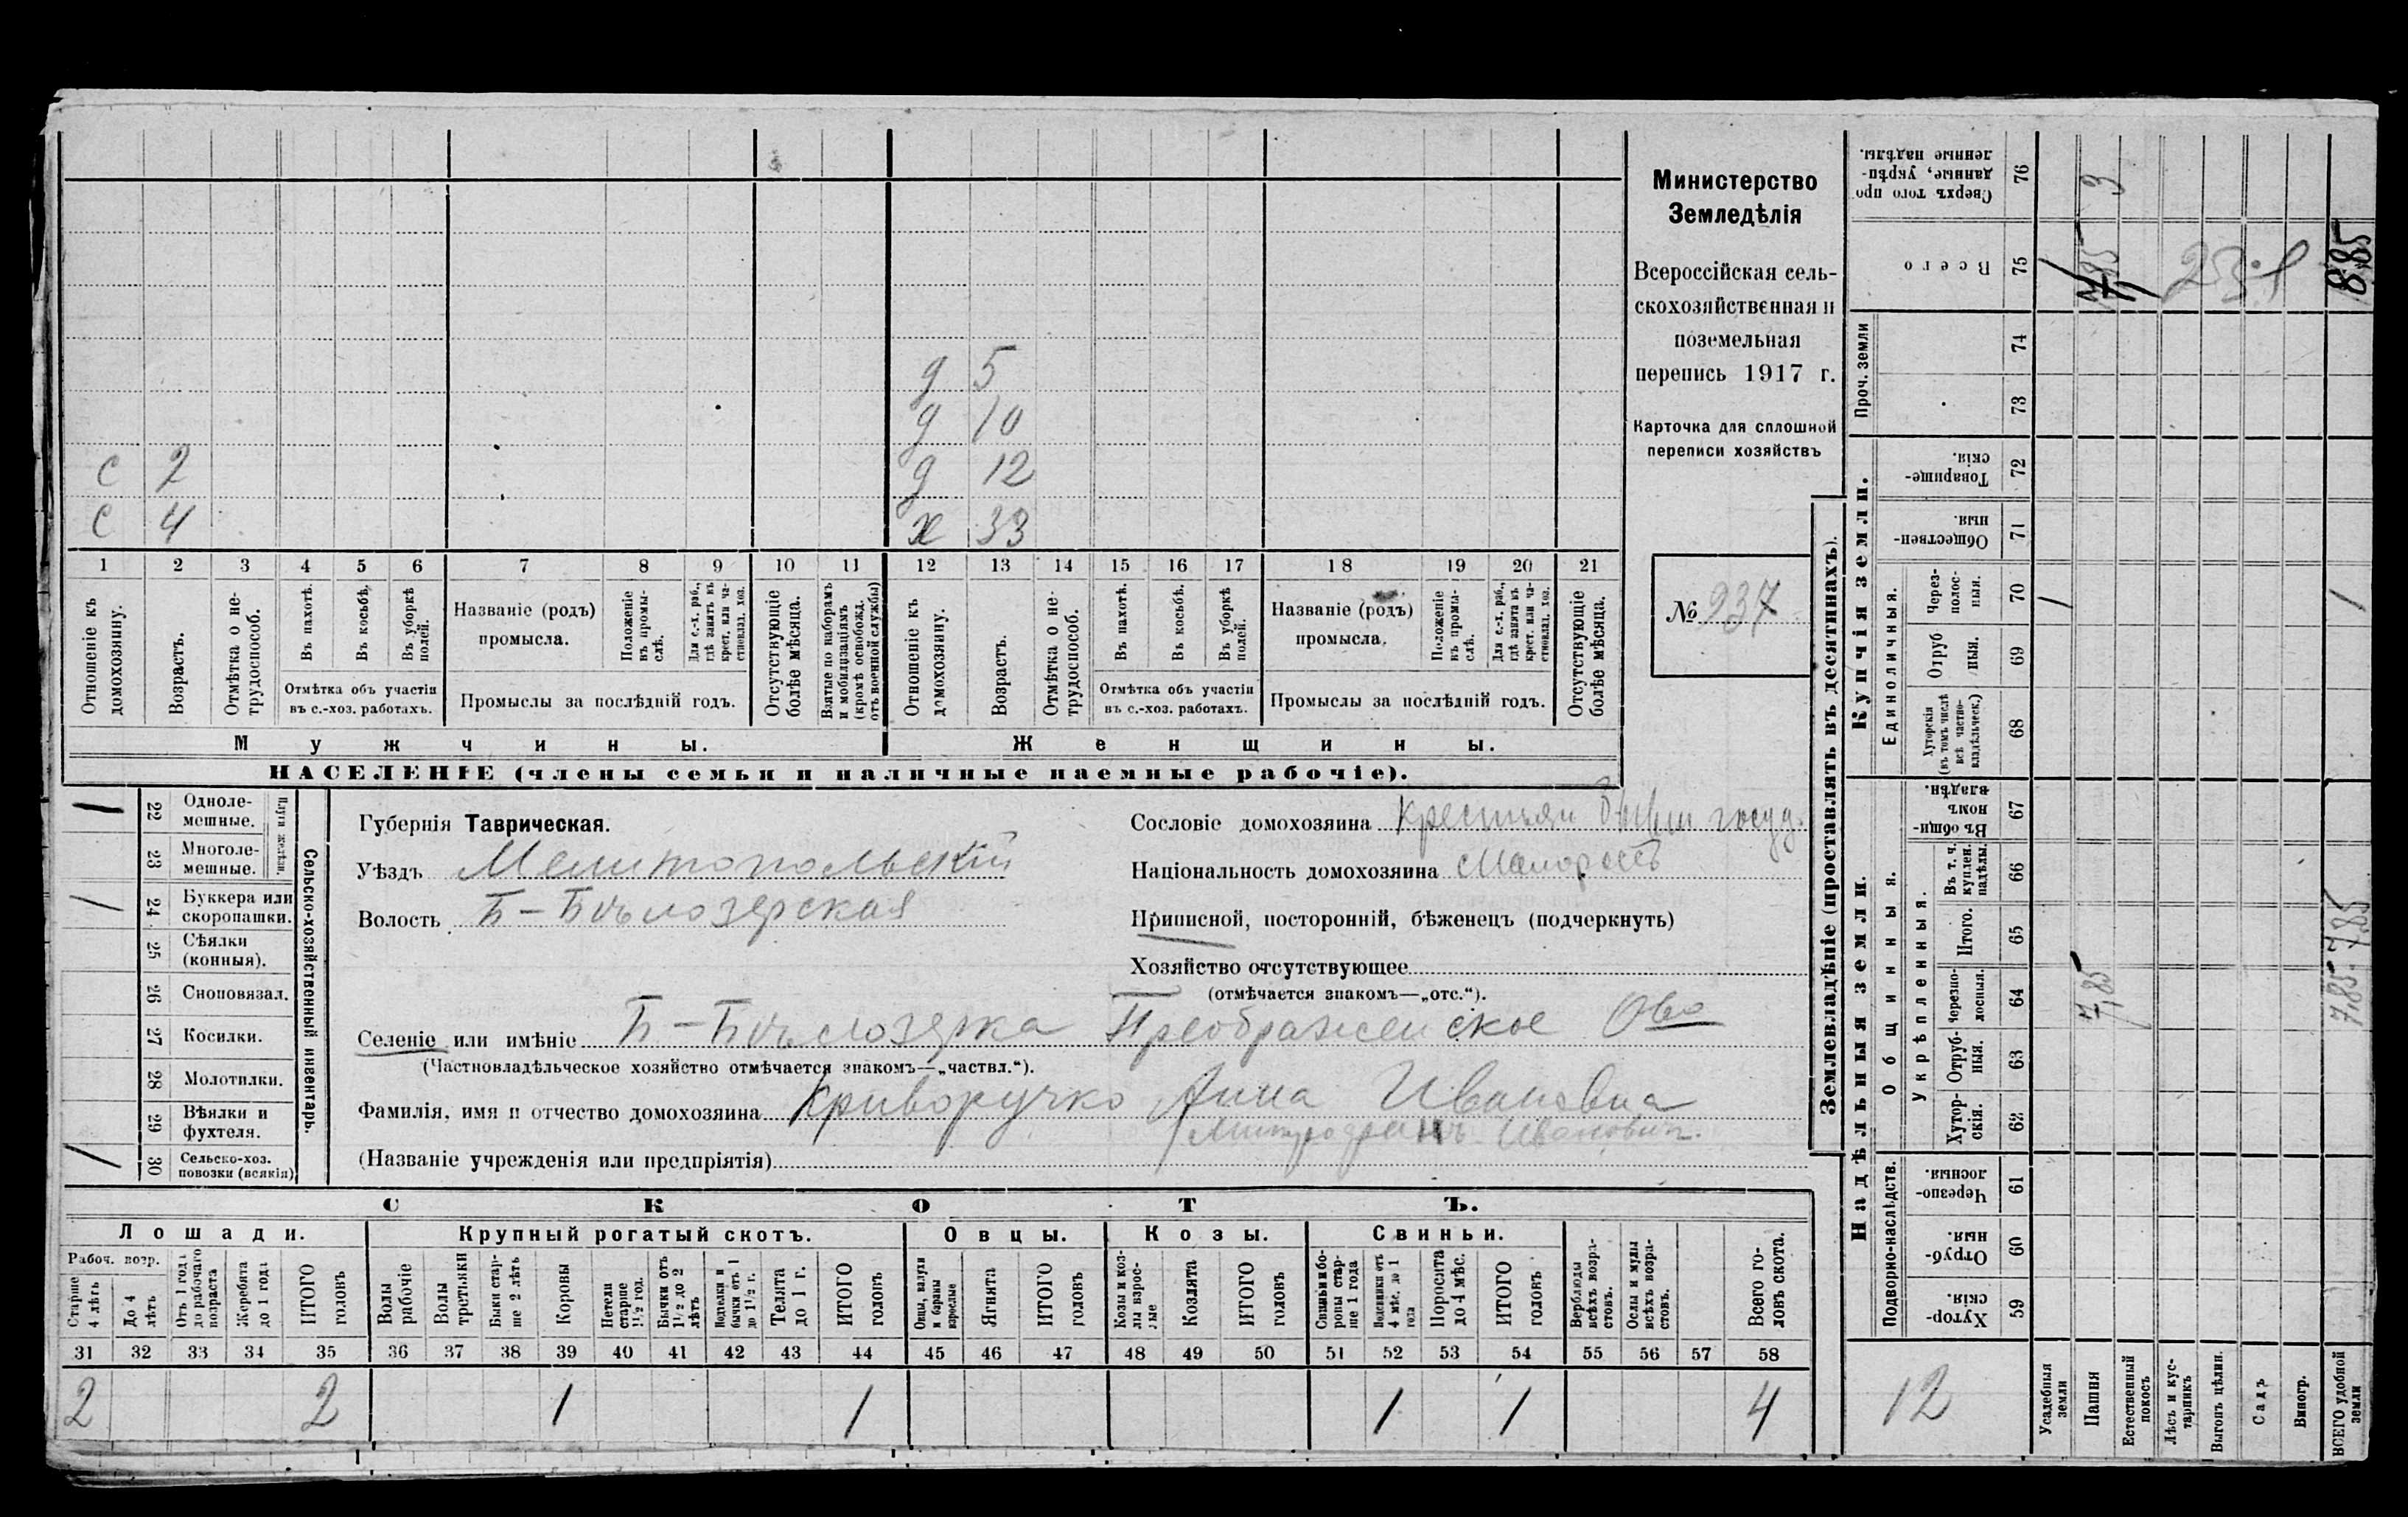 Министерство
Земледѣлія
Всероссійская сель-
скохозяйственная и
поземельная
перепись 1917 г.
Карточка для сплошной
переписи хозяйствъ
№ 937
д 5
д 10
с 2 д 12
с 4 ж 33
1 2 3 4 5 6 7 8 9 10 11 12 13 14 15 16 17 18 19 20 21
Отношеніе къ домохозяину.
Возрастъ.
Отмѣтка о не-трудоспособ.
Въ пахотѣ.
Въ косьбѣ.
Въ уборкѣ полей.
Отмѣтка объ участіи
въ с.-хоз. работахъ.
Названіе (родъ)
промысла.
Положеніе въ промы-слѣ.
Для с.-х. раб., гдѣ занятъ въ крест. или ча-стновлад. хоз.
Промыслы за послѣдній годъ.
Отсутствующіе болѣе мѣсяца.
Взятые по наборамъ и мобилизаціямъ (кромѣ освобожд. отъ военной службы)
Отношеніе къ домохозяину.
Возрастъ.
Отмѣтка о не-трудоспособ.
Въ пахотѣ.
Въ косьбѣ.
Въ уборкѣ полей.
Отмѣтка объ участіи
въ с.-хоз. работахъ.
Названіе (родъ)
промысла.
Положеніе въ промы-слѣ.
Для с.-х. раб., гдѣ занята въ крест. или ча-стновлад. хоз.
Промыслы за послѣдній годъ.
Отсутствующіе болѣе мѣсяца.
Мужчины. Женщины.
НАСЕЛЕНІЕ (члены семьи и наличные наемные рабочіе).
Сельско-хозяйственный инвентарь.
Плуги желѣзн.
/ 22 Одноле-мешные.
23 Многоле-мешные.
/ 24 Буккера или скоропашки.
25 Сѣялки (конныя).
26 Сноповязал.
27 Косилки.
28 Молотилки.
29 Вѣялки и фухтеля.
/ 30 Сельско-хоз. повозки (всякія)
Губернія Таврическая.
Уѣздъ Мелитопольскій
Волость Б-Бѣлозерская
Сословіе домохозяина крестьян госуд.
Національность домохозяина Малороссъ
Приписной, посторонній, бѣженецъ (подчеркнуть)
Хозяйство отсутствующее
(отмѣчается знакомъ—„отс.“).
Селеніе или имѣніе Б-Бѣлозерка Преображенское Ово
(Частновладѣльческое хозяйство отмѣчается знакомъ—„частвл.“).
Фамилія, имя и отчество домохозяина Криворучко Анна Ивановна
Митрофанъ Иванович.
(Названіе учрежденія или предпріятія)
СКОТЪ.
Лошади. Крупный рогатый скотъ. Овцы. Козы. Свиньи.
Рабоч. возр.
Старше 4 лѣтъ
До 4 лѣтъ
Отъ 1 года до рабочаго возраста
Жеребята до 1 года
ИТОГО головъ
Волы рабочіе
Волы третьяки
Быки стар-ше 2 лѣтъ
Коровы
Нетели старше 1½ год.
Бычки отъ 1½ до 2 лѣтъ
бычки отъ 1 до 1½ г.
Телята до 1 г.
ИТОГО головъ
Овцы, валухи и бараны взрослые
Ягнята
ИТОГО головъ
Козы и коз-лы взрос-лые
Козлята
ИТОГО головъ
Свиньи и бо-ровы стар-ше 1 года
Подсвинки отъ 4 мѣс. до 1 года
Поросята до 4 мѣс.
ИТОГО головъ
Верблюды всѣхъ возра-стовъ.
Ослы и мулы всѣхъ возра-стовъ.
Всего го-ловъ скота.
31 32 33 34 35 36 37 38 39 40 41 42 43 44 45 46 47 48 49 50 51 52 53 54 55 56 57 58
2 2 1 1 1 1 4
Землевладѣніе (проставлять въ десятинахъ).
Надѣльныя земли.
Купчія земли.
Проч. земли
Подворно-наслѣдств.
Общинныя.
Укрѣпленныя.
Единоличныя.
59 Хутор-скія.
60 Отруб-ныя.
61 Черезпо-лосныя.
62 Хутор-скія.
63 Отруб-ныя.
64 Черезпо-лосныя.
65 Итого.
66 Въ т. ч. куплен. надѣлы.
67 Въ общин-номъ владѣн.
68 Хуторскія (въ томъ числѣ всѣ частно-владѣльческ.)
69 Отруб ныя.
70 Через-полос-ныя.
71 Обществен-ныя.
72 Товарище-скія.
73
74
75 Всего
76 Сверхъ того про данные, укрѣп-ленные надѣлы.
12
Усадебныя земли /
Пашня 7,85 7,85 3
Естественный покосъ
Лѣсъ и кус-тарникъ
Выгонъ цѣлин.
Садъ
Виногр.
ВСЕГО удобной земли 7,85 7,85 / 8 85